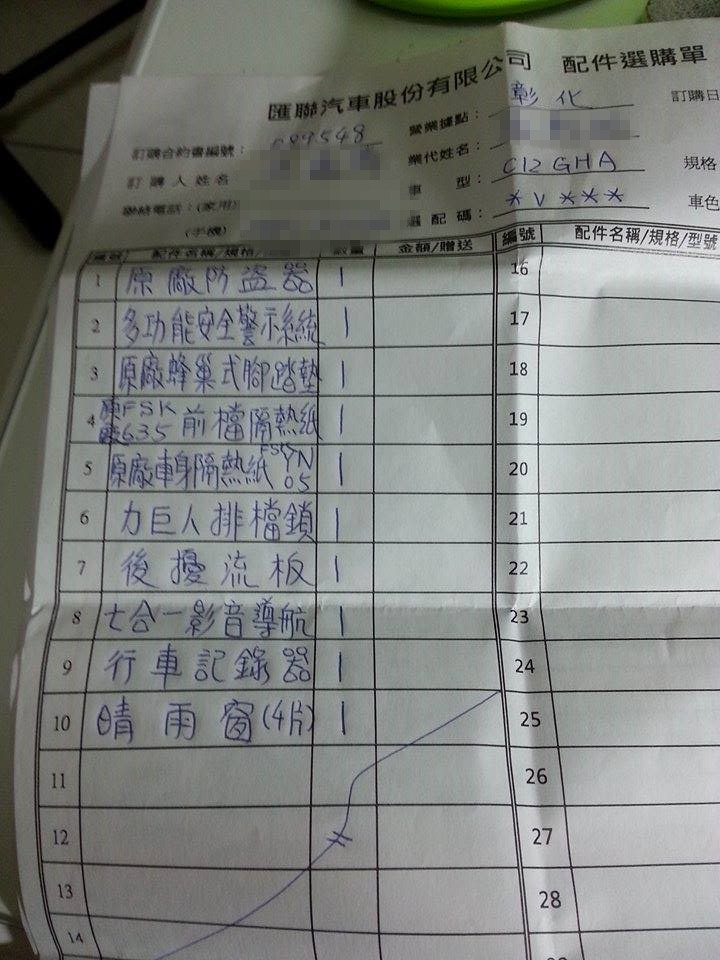 匯聯汽車股份有限公司 配件選購單
訂購合約書編號： 089548 營業據點： 彰化 訂購日
訂購人姓名 業代姓名：
聯絡電話：(家用) 車型： C12 GHA 規格
(手機) 選配碼： * V * * * 車色
編號 配件名稱/規格/ 數量 金額/贈送 編號 配件名稱/規格/型號
1 原廠防盜器 1 16
2 多功能安全警示系統 1 17
3 原廠蜂巢式腳踏墊 1 18
4 原廠FSK 635 前檔隔熱紙 1 19
5 原廠車身隔熱紙 FSK YN 05 1 20
6 力巨人排檔鎖 1 21
7 後擾流板 1 22
8 七合一影音導航 1 23
9 行車記錄器 1 24
10 晴雨窗(4片) 1 25
11 26
12 27
13 28
14